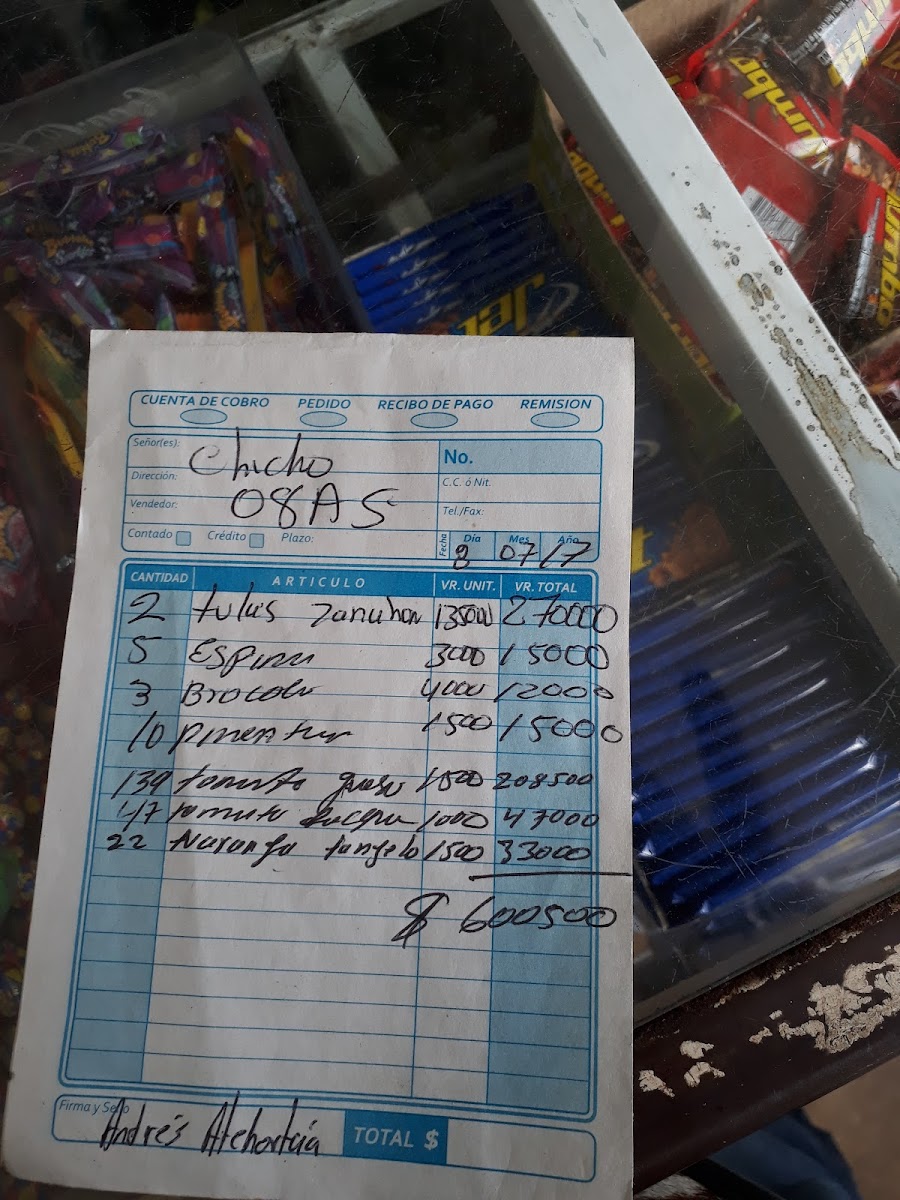 Jumbo
Jumbo
Jet
CUENTA DE COBRO PEDIDO RECIBO DE PAGO REMISION
Señor(es): Chicho
No.
Dirección: 08AS
C.C. ó Nit.
Vendedor:
Tel./Fax:
Contado Crédito Plazo:
Fecha Día Mes Año
8 07/7
CANTIDAD ARTICULO VR. UNIT. VR. TOTAL
2 tulas 135000 270000
5 3000 15000
3 Brocoli 4000 12000
10 1500 15000
139 tomate 1500 208500
47 tomate 1000 47000
22 Naranja tangelo 1500 33000
$ 600500
Firma y Sello Andrés Atehortúa
TOTAL $